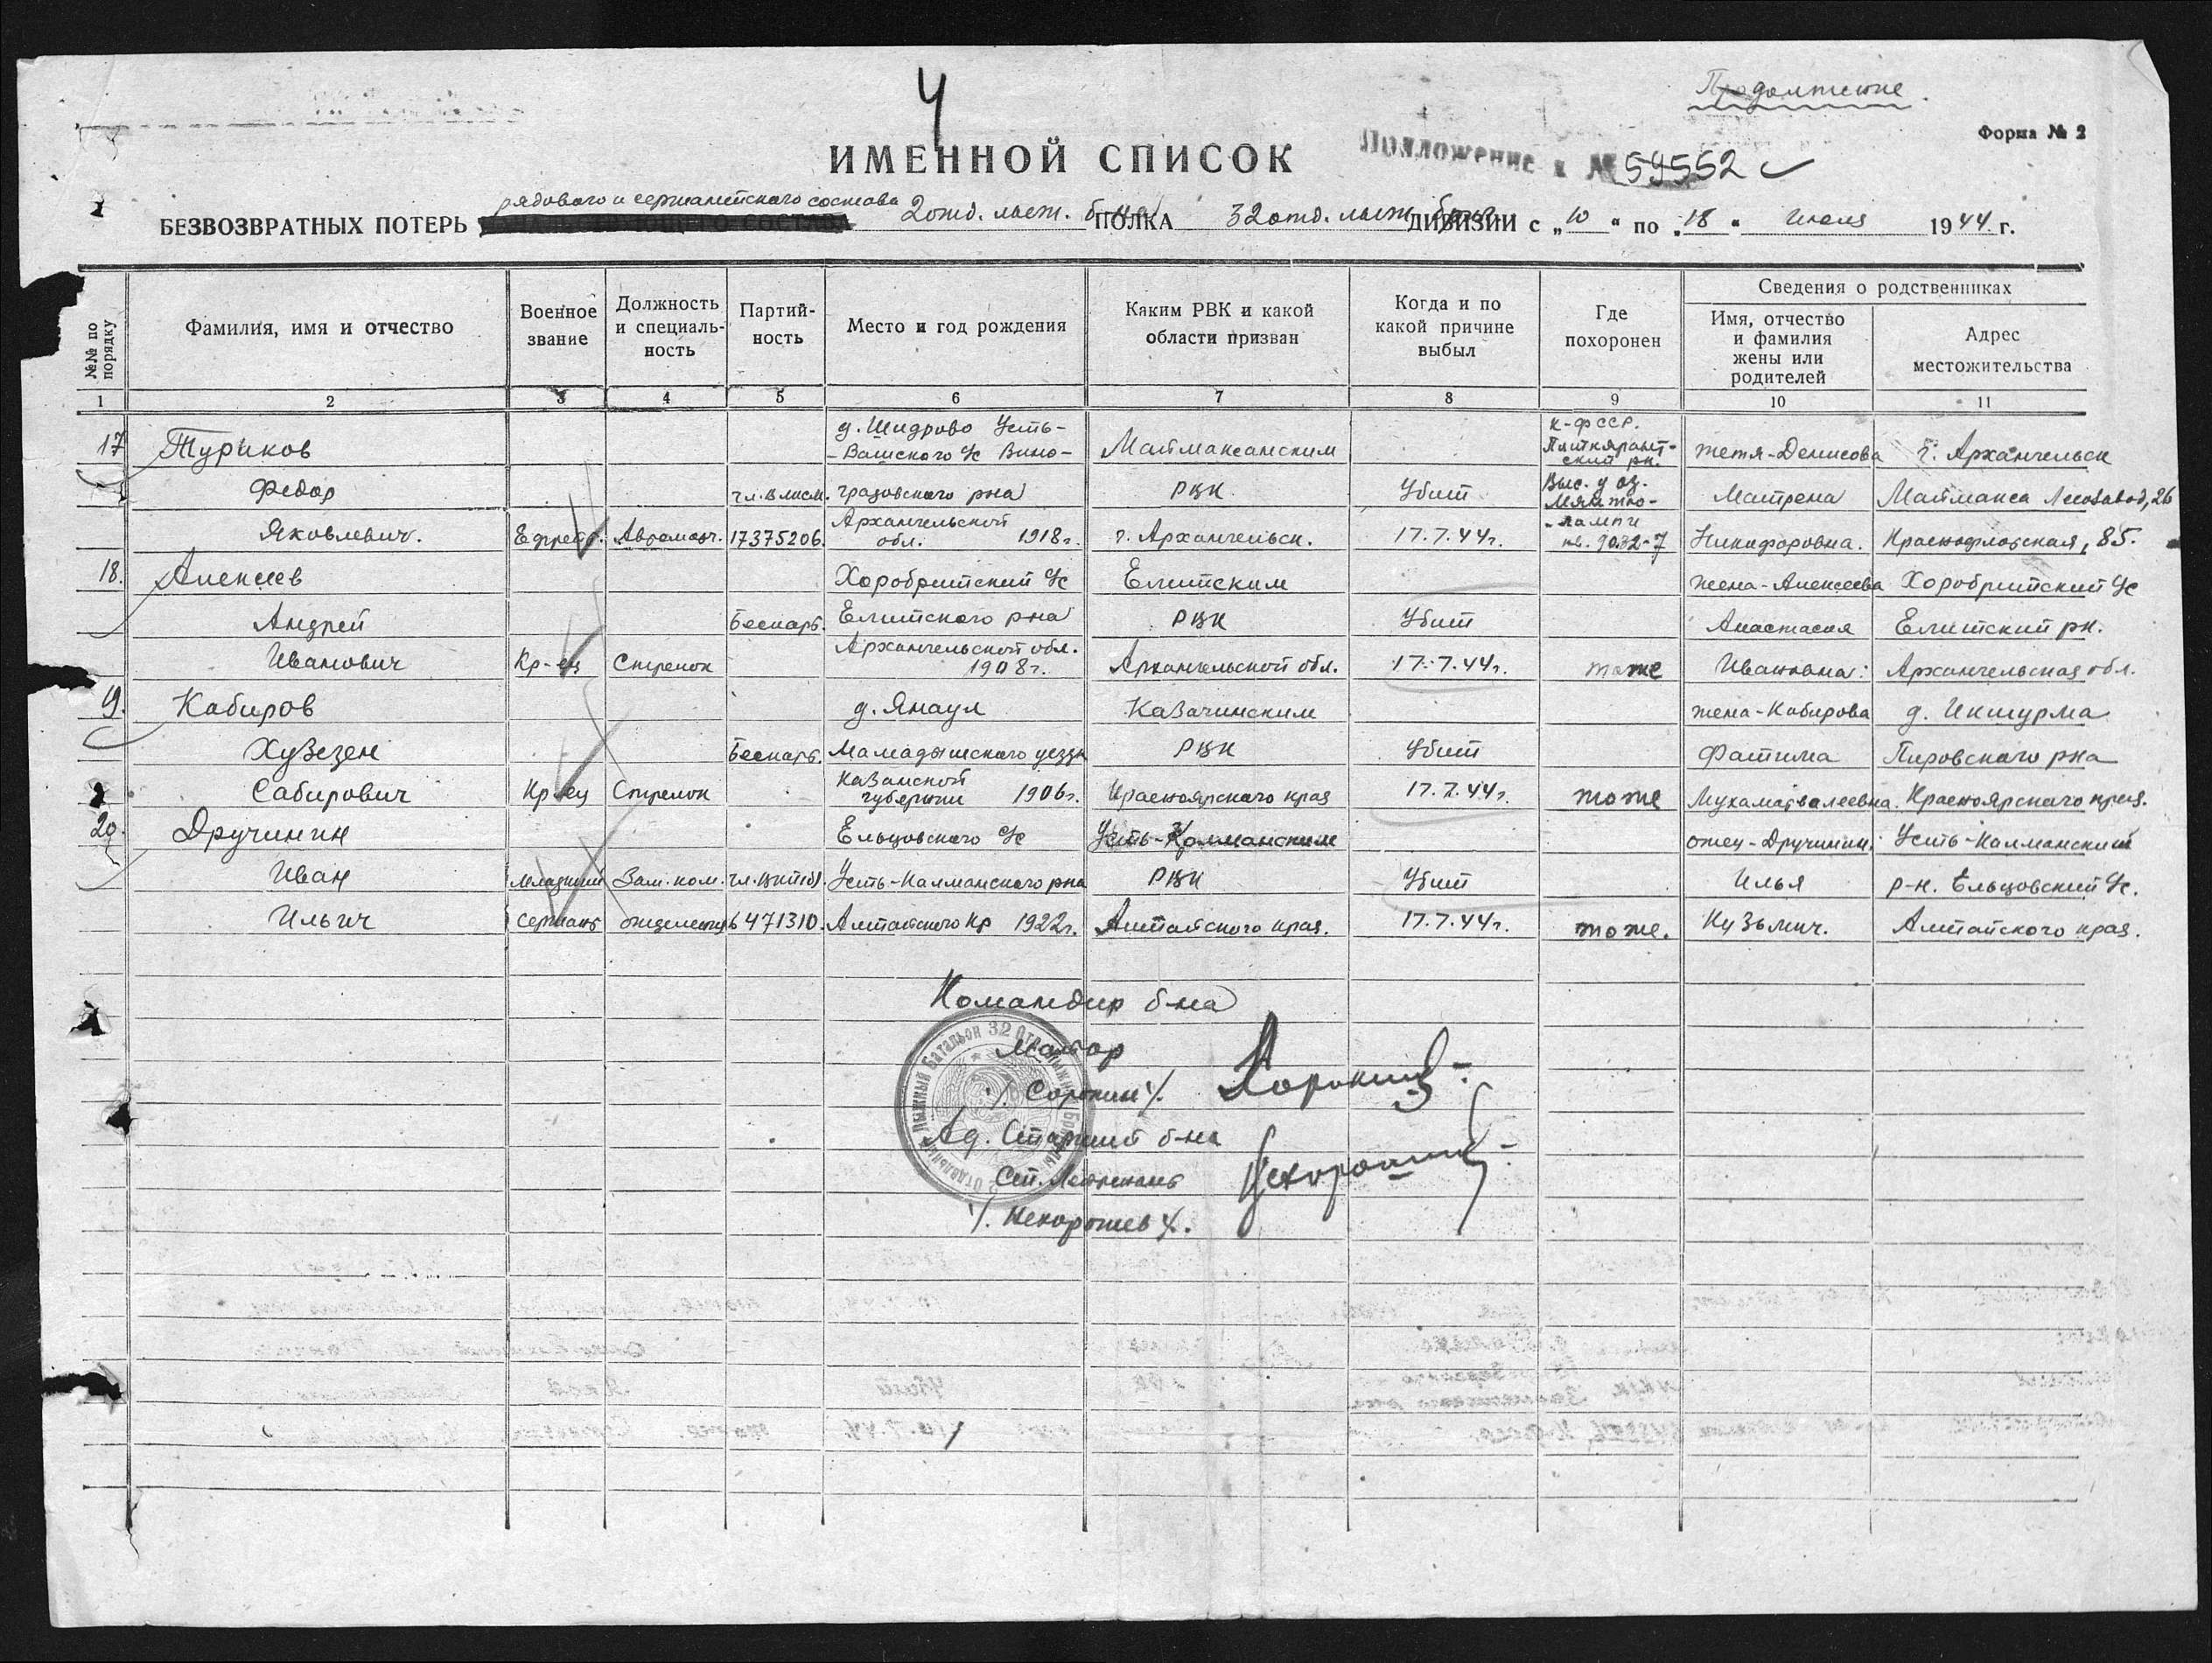 4
Продолжение.
Форма № 2
ИМЕННОЙ СПИСОК
Приложение к № 59552
БЕЗВОЗВРАТНЫХ ПОТЕРЬ рядового и сержантского состава 2 отд. лыж. б-на ПОЛКА 32 отд. лыж. бриг. ДИВИЗИИ с „10“ по „18“ июля 1944 г.
№№ по порядку
Фамилия, имя и отчество
Военное звание
Должность и специальность
Партийность
Место и год рождения
Каким РВК и какой области призван
Когда и по какой причине выбыл
Где похоронен
Сведения о родственниках
Имя, отчество и фамилия жены или родителей
Адрес местожительства
1 2 3 4 5 6 7 8 9 10 11
17 Туриков д. Шидрово Усть-Вашского с/с Вино- Маймаксанским К-ФССР. Питкярант-ский рн. тетя-Денисова г. Архангельск
Федор чл. влксм. градовского рна РВК Убит Выс. у оз. Матрена Маймакса Лесозавод, 26
Яковлевич. Ефрейт. Автоматч. 17375206. Архангельской обл. 1918г. г. Архангельск. 17.7.44г. -лампи кв. 9032-7 Никифоровна. Краснофлотская, 85.
18. Алексеев Хоробритский с/с Емитским жена-Алексеева Хоробритский с/с
Андрей Беспарт. Емитского рна РВК Убит Анастасия Емитский рн.
Иванович Кр-ец Стрелок Архангельской обл. 1908г. Архангельской обл. 17.7.44г. тоже Ивановна. Архангельская обл.
19. Кабиров д. Янаул Казачинским жена-Кабирова д. Икшурма
Хузезен Беспарт. Мамадышского уезда РВК Убит Фатима Пировского рна
Сабирович Кр-ец Стрелок Казанской губернии 1906г. Красноярского края 17.7.44г. тоже Мухаматвалеевна. Красноярского края.
20. Дручинин Ельцовского с/с Усть-Калманским отец-Дручинин Усть-Калманский
Иван Младший Зам. ком. чл. ВКП(б) Усть-Калманского рна РВК Убит Илья р-н. Ельцовский с/с.
Ильич сержант отделения 6471310. Алтайского кр 1922г. Алтайского края. 17.7.44г. тоже. Кузьмич. Алтайского края.
Командир б-на
Майор
/. Сорокин /.
Ад. Старший б-на
Ст. Лейтенант
/. Нехорошев /.
2 Отдельный Лыжный Батальон 32 Отд. Лыжной Бригады